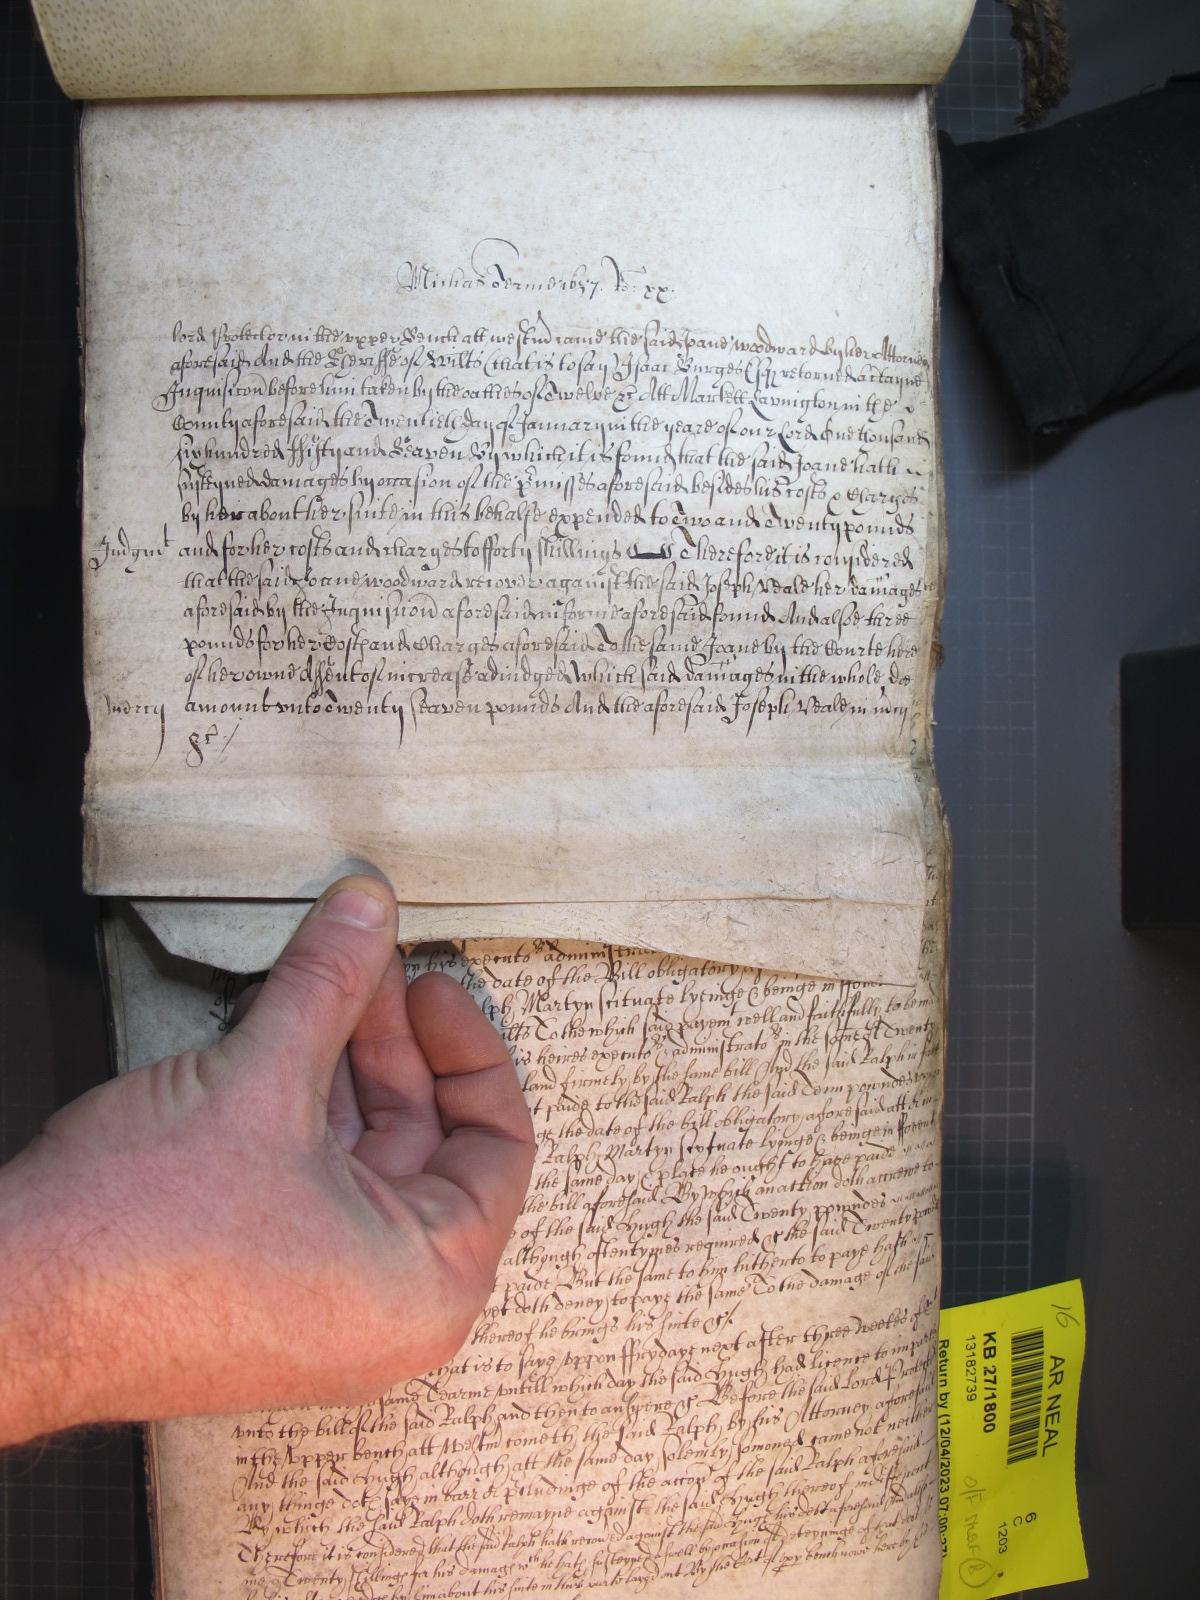 Michas Terme 1657. Ro: xx.
lord Protector in the upper Bench att westm came the said Joane woodward by her Attorney
aforesaid And the Sheriffe of Wilts (that is to say) Isaac Burges Esqr returned a certayne
Inquisicon before him taken by the oathes of Twelve &c Att Markett Lavington in the
County aforesaid the Twentieth day of January in the yeare of our Lord One thousand
six hundred ffifty and Seaven By which it is found that the said Joane hath
susteyned damages by occasion of the pmisses aforesaid besides his costs & Charges
by her about her suite in this behalfe expended to Two and Twenty pounds
Judgmt and for her costs and charges to fforty shillings Therefore it is considered
that the said Joane woodward recover against the said Joseph Veale her damages
aforesaid by the Inquisicon aforesaid in forme aforesaid found And alsoe three
pounds for her Costs and Charges aforesaid To the same Joane by the Courte here
of her owne Assent of increase adiudged which said damages in the whole doe
amount unto Twenty seaven pounds And the aforesaid Joseph Veale in mcy
mercy
&c:/
his executors administrators
the date of the Bill obligatory
Ralph Martyn scituate lyeinge & beinge in
Wilts To the which said payemt well and faithfully to be
his heires executors & administrators in the some of Twenty
and firmely by the same bill And the said Ralph in fact
paide to the said Ralph the said Tenn powndes
the date of the bill obligatory aforesaid att
Ralph Martyn scytuate lyinge & beinge in
the same day & place he ought to have paide
the bill aforesaid By which an action doth accrewe to
of the said Hugh the said Twenty powndes
although oftentymes required &c the said Twenty pownds
paide But the same to him hitherto to paye hath
yet doth deney to paye the same To the damage of the said
thereof he brings his suite &c/.
that is to saye uppon ffrydaye next after three weekes of
same Tearme untill which day the said Hugh had licence to imparle
unto the bill of the said Ralph and then to answere &c Before the said Lord Protector
in the upper bench att Westm cometh the said Ralph by his Attorney aforesaid
And the said Hugh although att the same day solemly somoned came not neither
any thinge doth saye in barr or pcludinge of the accon of the said Ralph aforesaid
By which the said Ralph doth remayne against the said Hugh thereof
Therefore it is considered that the said Ralph hath recoverd against the said Hugh his debt aforesaid
Twenty shillings for his damage wch he hath susteyned aswell by occasion of deteyninge of that debt
by him about his suite in this parte layed out By the Cort of upp bench nowe here by
16
AR NEAL
KB 27/1800
13182739
Return by (12/04/2023 07:00:27)
6
C
1203